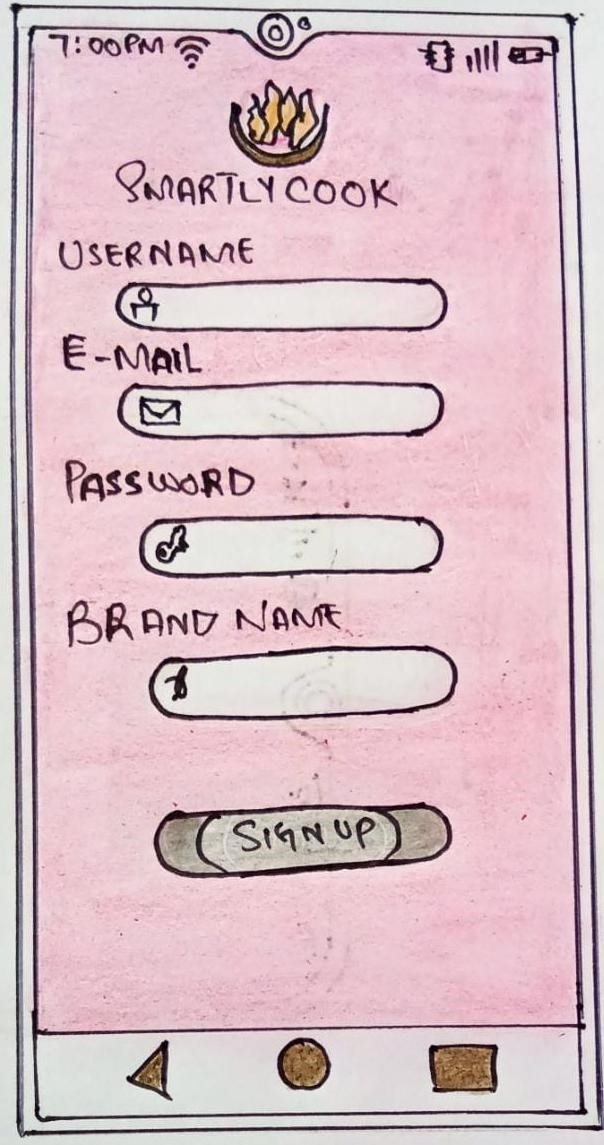 7:00PM
SMARTLY COOK
USERNAME
E-MAIL
PASSWORD
BRAND NAME
SIGN UP